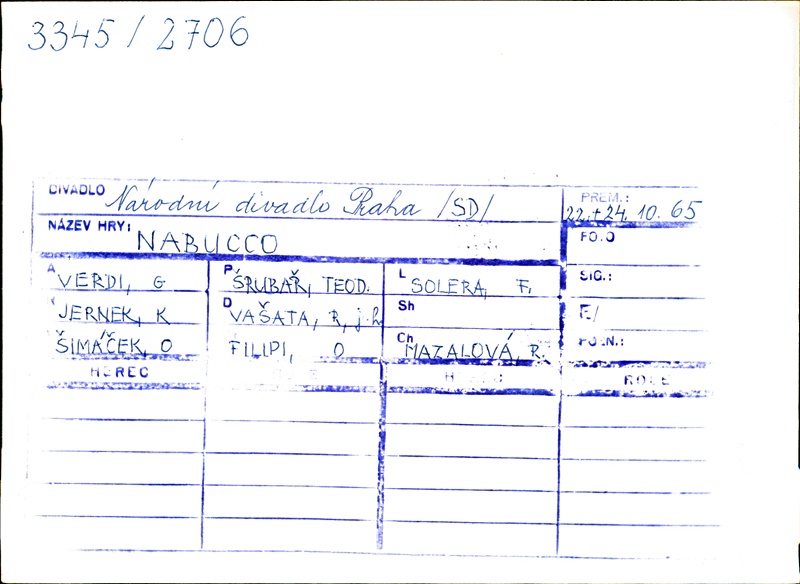 3345 / 2706
DIVADLO Národní divadlo Praha /SD/ PREM.: 22.+24. 10. 65
NÁZEV HRY: NABUCCO FOTO
A VERDI, G P ŠRUBAŘ, TEOD. L SOLERA, F. SIG.:
JERNEK, K D VAŠATA, R, j.h. Sh E/
ŠIMÁČEK, O FILIPI, O Ch MAZALOVÁ, R. POZN.:
HEREC ROLE